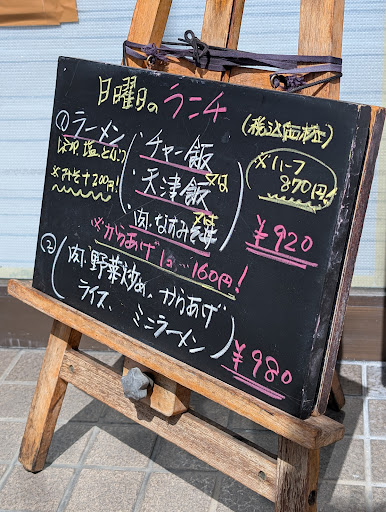 日曜日のランチ
(税込価格)
① ラーメン
※みそは200円!
・チャー飯
・天津飯
・肉・なすみそ丼
※は
※は
※ハーフ
870円!
¥920
※からあげ1コ…160円!
② 肉・野菜炒め、からあげ
ライス、ミニラーメン
¥980